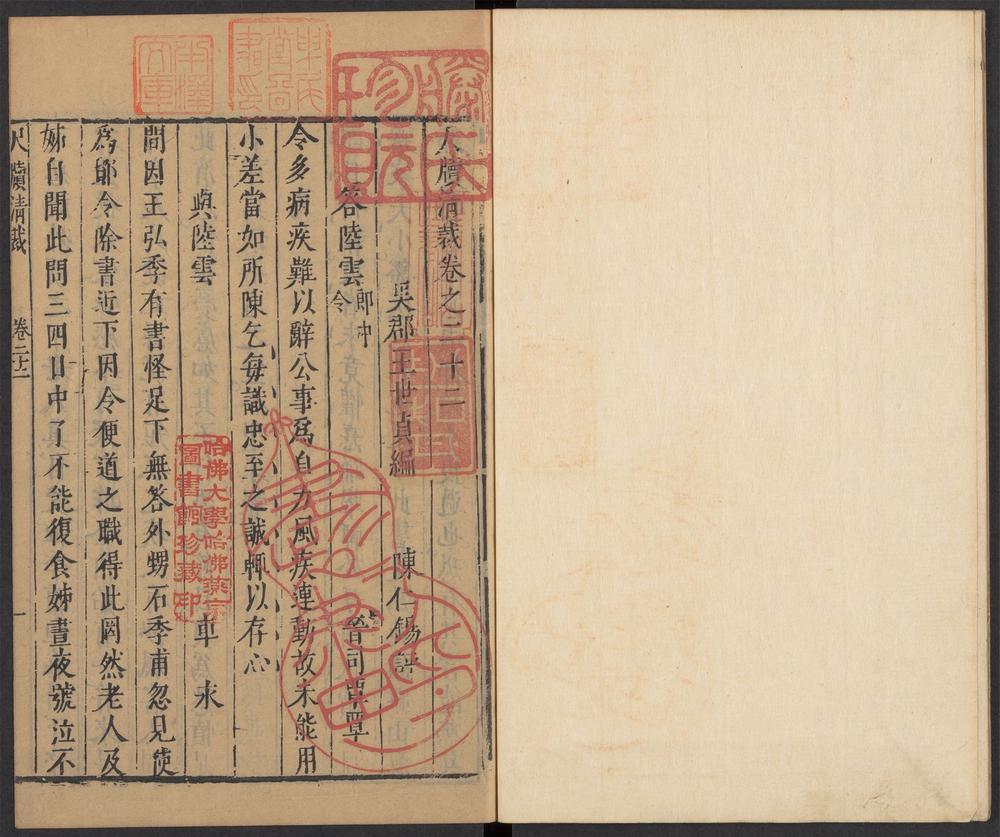 尺牘清裁卷之二十二
吳郡王世貞編 陳仁錫評
答陸雲 郎中令 晉司馬覃
令多病疾難以辭公事爲自力風疾連動故未能用
小差當如所陳乞每識忠至之誠輒以存心
與陸雲 車永
間因王弘季有書怪足下無答外甥石季甫忽見使
爲鄮令除書近下因令便道之職得此罔然老人及
姊自聞此問三四日中了不能復食姊晝夜號泣不
尺牘清裁 卷二十二 一
哈佛大學哈佛燕京
圖書館珍藏印